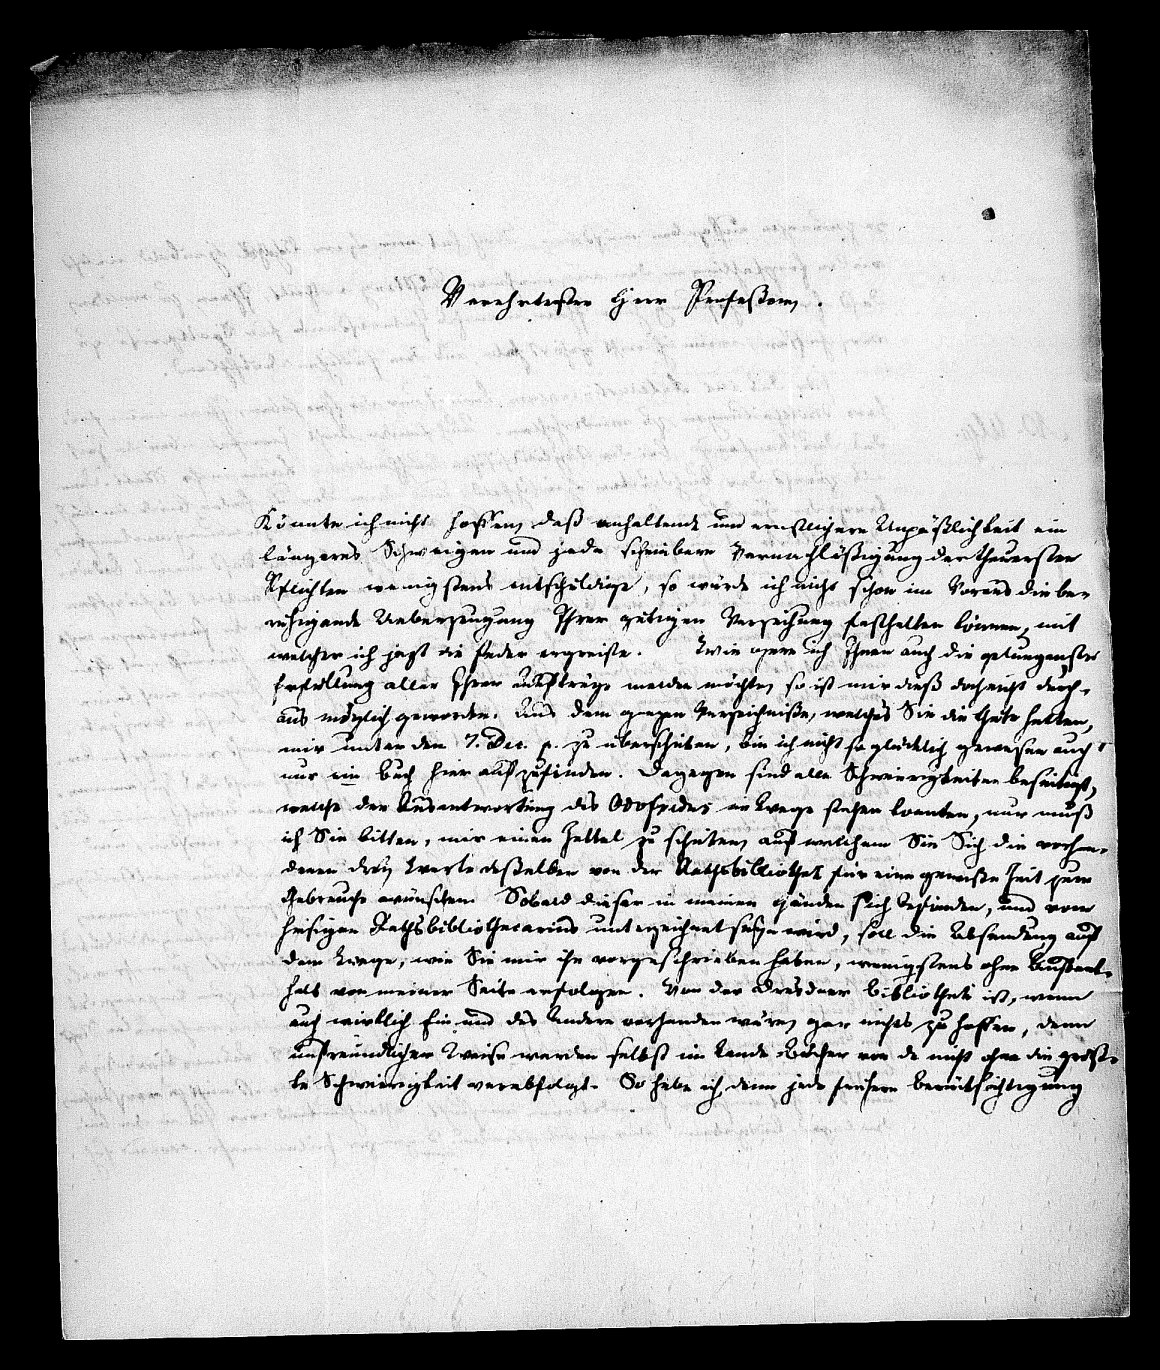 Verehrtester Herr Profeßor,
Könnte ich nicht hoffen, daß anhaltende und ernstlichere Unpäßlichkeit ein
längeres Schweigen und jede scheinbare Vernachläßigung der theuersten
Pflichten wenigstens entschuldige, so würde ich nicht schon im Voraus die be-
ruhigende Ueberzeugung Ihrer gütigen Verzeihung festhalten können, mit
welcher ich jetzt die Feder ergreife. Wie gern ich Ihnen auch die gelungenste
Erfüllung aller Ihrer Aufträge melden möchte, so ist mir dieß doch nicht durch-
aus möglich geworden. Aus dem ganzen Verzeichniße, welches Sie die Güte hatten,
mir unter dem 7. Dec. p. zu überschicken, bin ich nicht so glücklich gewesen auch
nur ein Buch hier aufzufinden. Dagegen sind alle Schwierigkeiten beseitigt,
welche der Ausantwortung des Odofredus im Wege stehen konnten, nur muß
ich Sie bitten, mir einen Zettel zu schicken, auf welchem Sie Sich die vorhan-
denen drey Werke deßelben von der Rathsbibliothek für eine gewiße Zeit zum
Gebrauche wünschen. Sobald dieser in meinen Händen sich befinden, und vom
hiesigen Rathsbibliothecarius unterzeichnet seyn wird, soll die Absendung auf
dem Wege, wie Sie mir ihn vorgeschrieben haben, wenigstens ohne Aufent-
halt von meiner Seite erfolgen. Von der Dresdner Bibliothek ist, wenn
auch wirklich Ein und das Andere vorhanden wäre, gar nichts zu hoffen, denn
unfreundlicher Weise werden selbst im Lande Bücher von da nicht ohne die größ-
te Schwierigkeit verabfolgt. So habe ich denn jede frühere Berücksichtigung